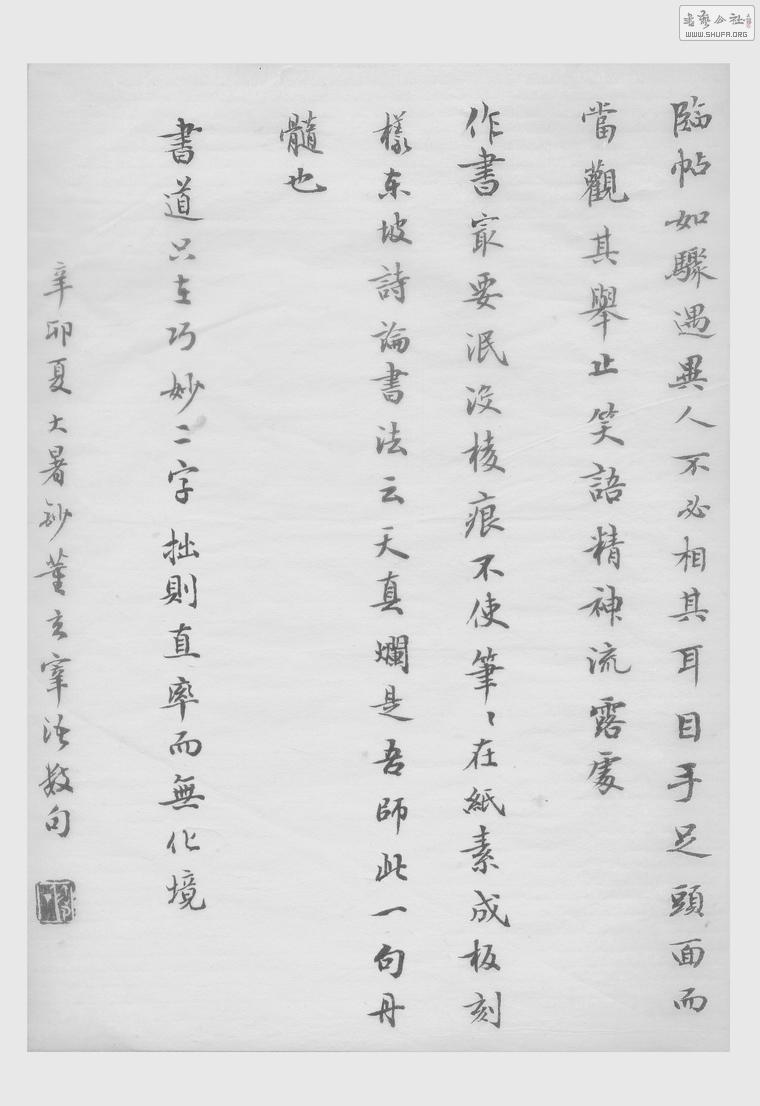 臨帖如驟遇異人不必相其耳目手足頭面而
當觀其舉止笑語精神流露處
作書㝡要泯沒棱痕不使筆〻在紙素成板刻
樣東坡詩論書法云天真爛是吾師此一句丹
髓也
書道只在巧妙二字拙則直率而無化境
辛卯夏大暑鈔董玄宰語數句
書艺公社
WWW.SHUFA.ORG